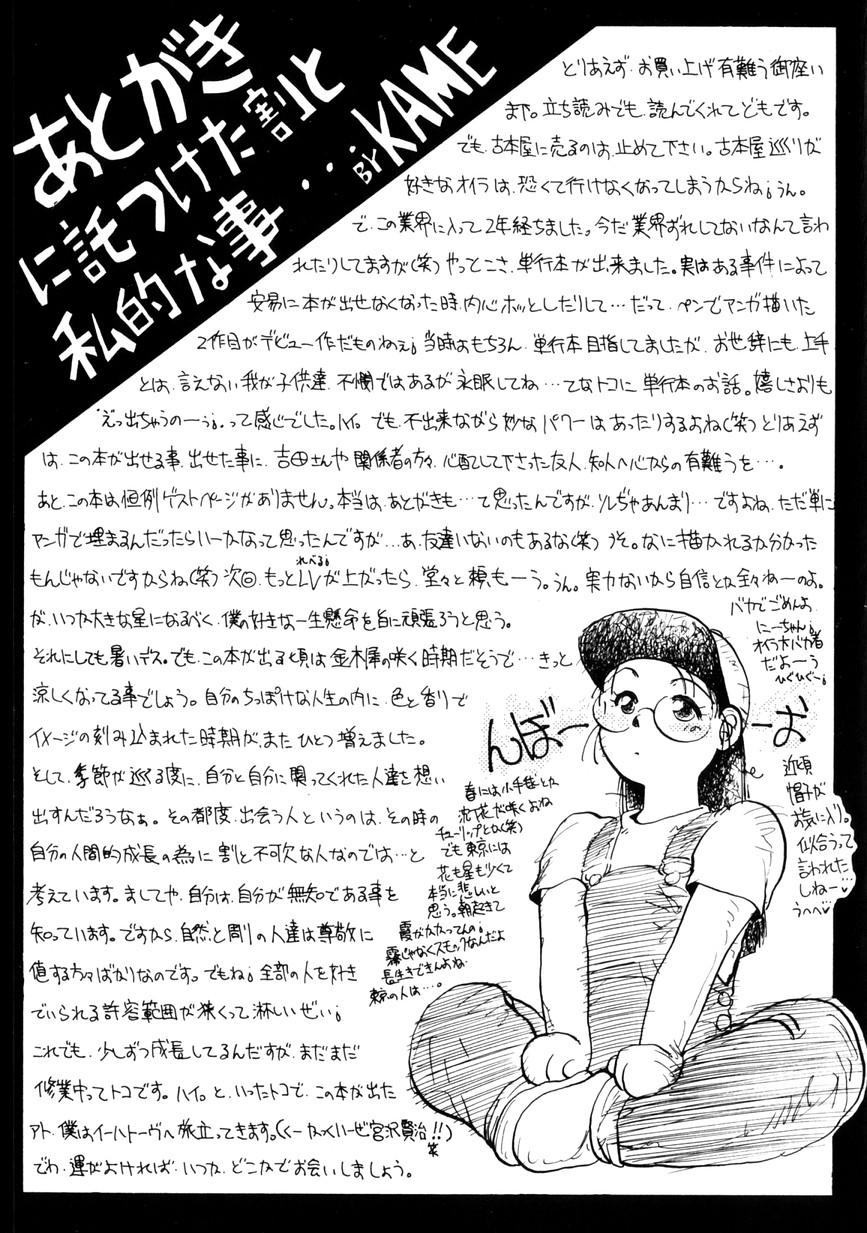 あとがき
に託つけた割と
私的な事…
BY KAME
とりあえず、お買い上げ有難う御座い
ます。立ち読みでも、読んでくれてどもです。
でも、古本屋に売るのは、止めて下さい。古本屋巡りが
好きなオイラは、恐くて行けなくなってしまうからね¡うん。
で、この業界に入って2年経ちました。今だ業界ずれしてないなんて言わ
れたりしてますが(笑)やっとこさ、単行本が出来ました。実はある事件によって
安易に本が出せなくなった時、内心ホッとしたりして…だって、ペンでマンガ描いた
2作目がデビュー作だものねぇ¡当時はもちろん、単行本目指してましたが、お世辞にも、上手
とは、言えない我が子供達、不憫ではあるが永眠してね…てなトコに、単行本のお話。嬉しさよりも
"えっ出ちゃうのーぅ¡"って感じでした。ハイ。でも、不出来ながら妙なパワーはあったりするよね(笑)とりあえず
は、この本が出せる事、出せた事に、吉田さんや関係者の方々、心配して下さった友人、知人へ心からの有難うを…。
あと、この本は恒例ゲストページがありません。本当は、あとがきも…て思ったんですが、ソレぢゃあんまり…ですよね、ただ単に
マンガで埋まるんだったらいーかなって思ったんですが…あ、友達いないのもあるな(笑)うそ。なに描かれるか分かった
もんじゃないですからね(笑)次回、もっとLV(れべる¡)が上がったら、堂々と頼もーう。うん。実力ないから自信とか全々ねーのよ。
が、いつか大きな星になるべく、僕の好きな一生懸命を旨に頑張ろうと思う。
それにしても暑いデス。でも、この本が出る頃は金木犀の咲く時期だそうで…きっと
涼しくなってる事でしょう。自分のちっぽけな人生の内に、色と香りで
イメージの刻み込まれた時期が、またひとつ増えました。
そして、季節が巡る度に、自分と自分に関ってくれた人達を想い
出すんだろうなぁ。その都度、出会う人というのは、その時の
自分の人間的成長の為に割と不可欠な人なのでは…と
考えています。ましてや、自分は、自分が無知である事を
知っています。ですから、自然と周りの人達は尊敬に
値する方々ばかりなのです。でもね¡全部の人を好き
でいられる許容範囲が狭くって淋しいぜい¡
これでも、少しずつ成長してるんですが、まだまだ
修業中ってトコです。ハイ。と、いったトコで、この本が出た
アト、僕はイーハトーヴへ旅立ってきます。(くーかっくいーぜ宮沢賢治!!)
でわ、運がよければ、いつか、どこかでお会いしましょう。
バカでごめんよ
にーちゃん¡
オイラ大バカ者
だよーう
ひぐひぐー¡
おーんぼー
近頃
帽子が
お気に入り。
似合うって
言われた
しねー♡
うへへ♡
春には小手毬とか
沈丁花が咲くよね
チューリップとか(笑)
でも東京には
花も星も少くて
本当に悲しいと
思う。朝起きて
霞がかかってんの¡
霧じゃなくスモッグなんだよ
長生きできんよね
東京の人は…。